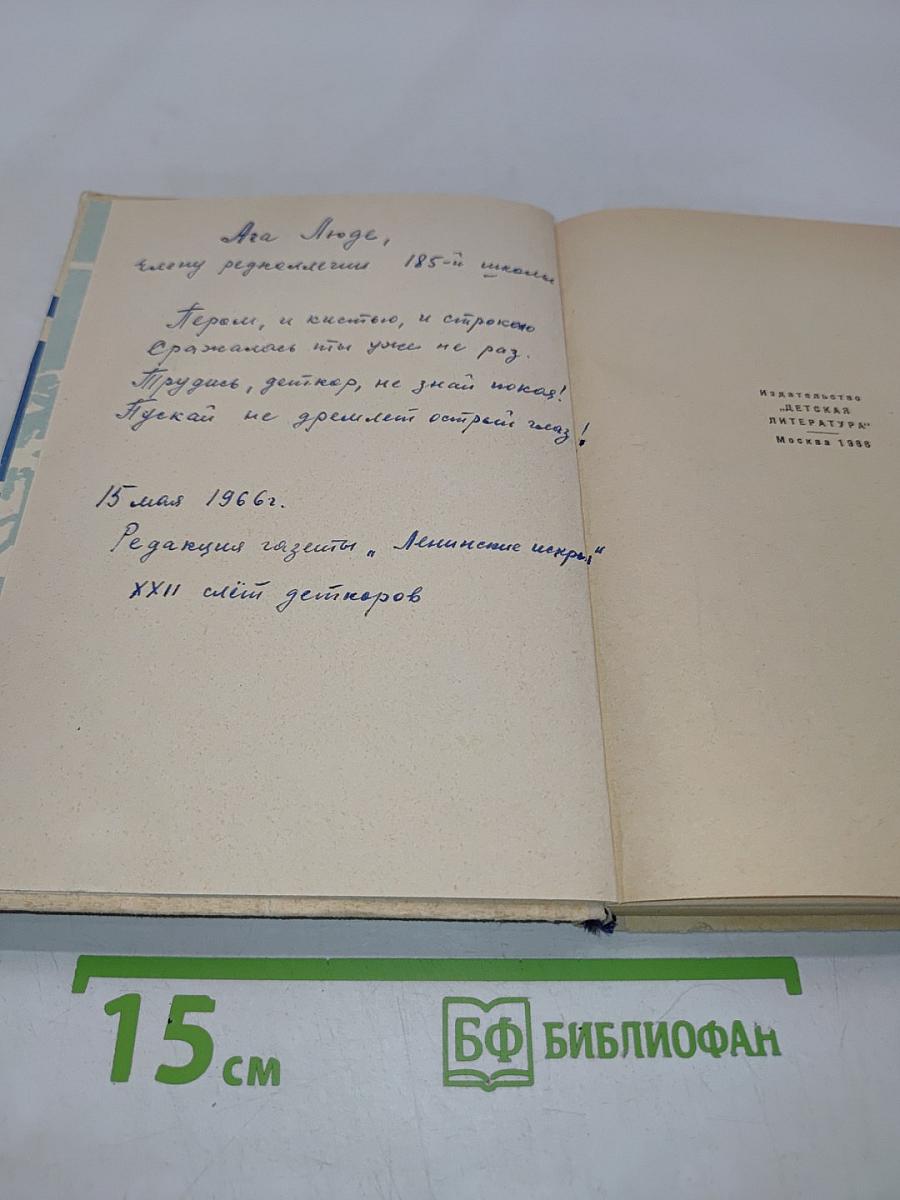 Ага Люде,
члену редколлегии 185-й школы
Пером, и кистью, и строкою
Сражалась ты уже не раз.
Трудись, деткор, не знай покоя!
Пускай не дремлет острый глаз!
15 мая 1966г.
Редакция газеты „Ленинские искры"
XXII слёт деткоров
Издательство
„ДЕТСКАЯ
ЛИТЕРАТУРА"
Москва 1966
15 см
БФ БИБЛИОФАН